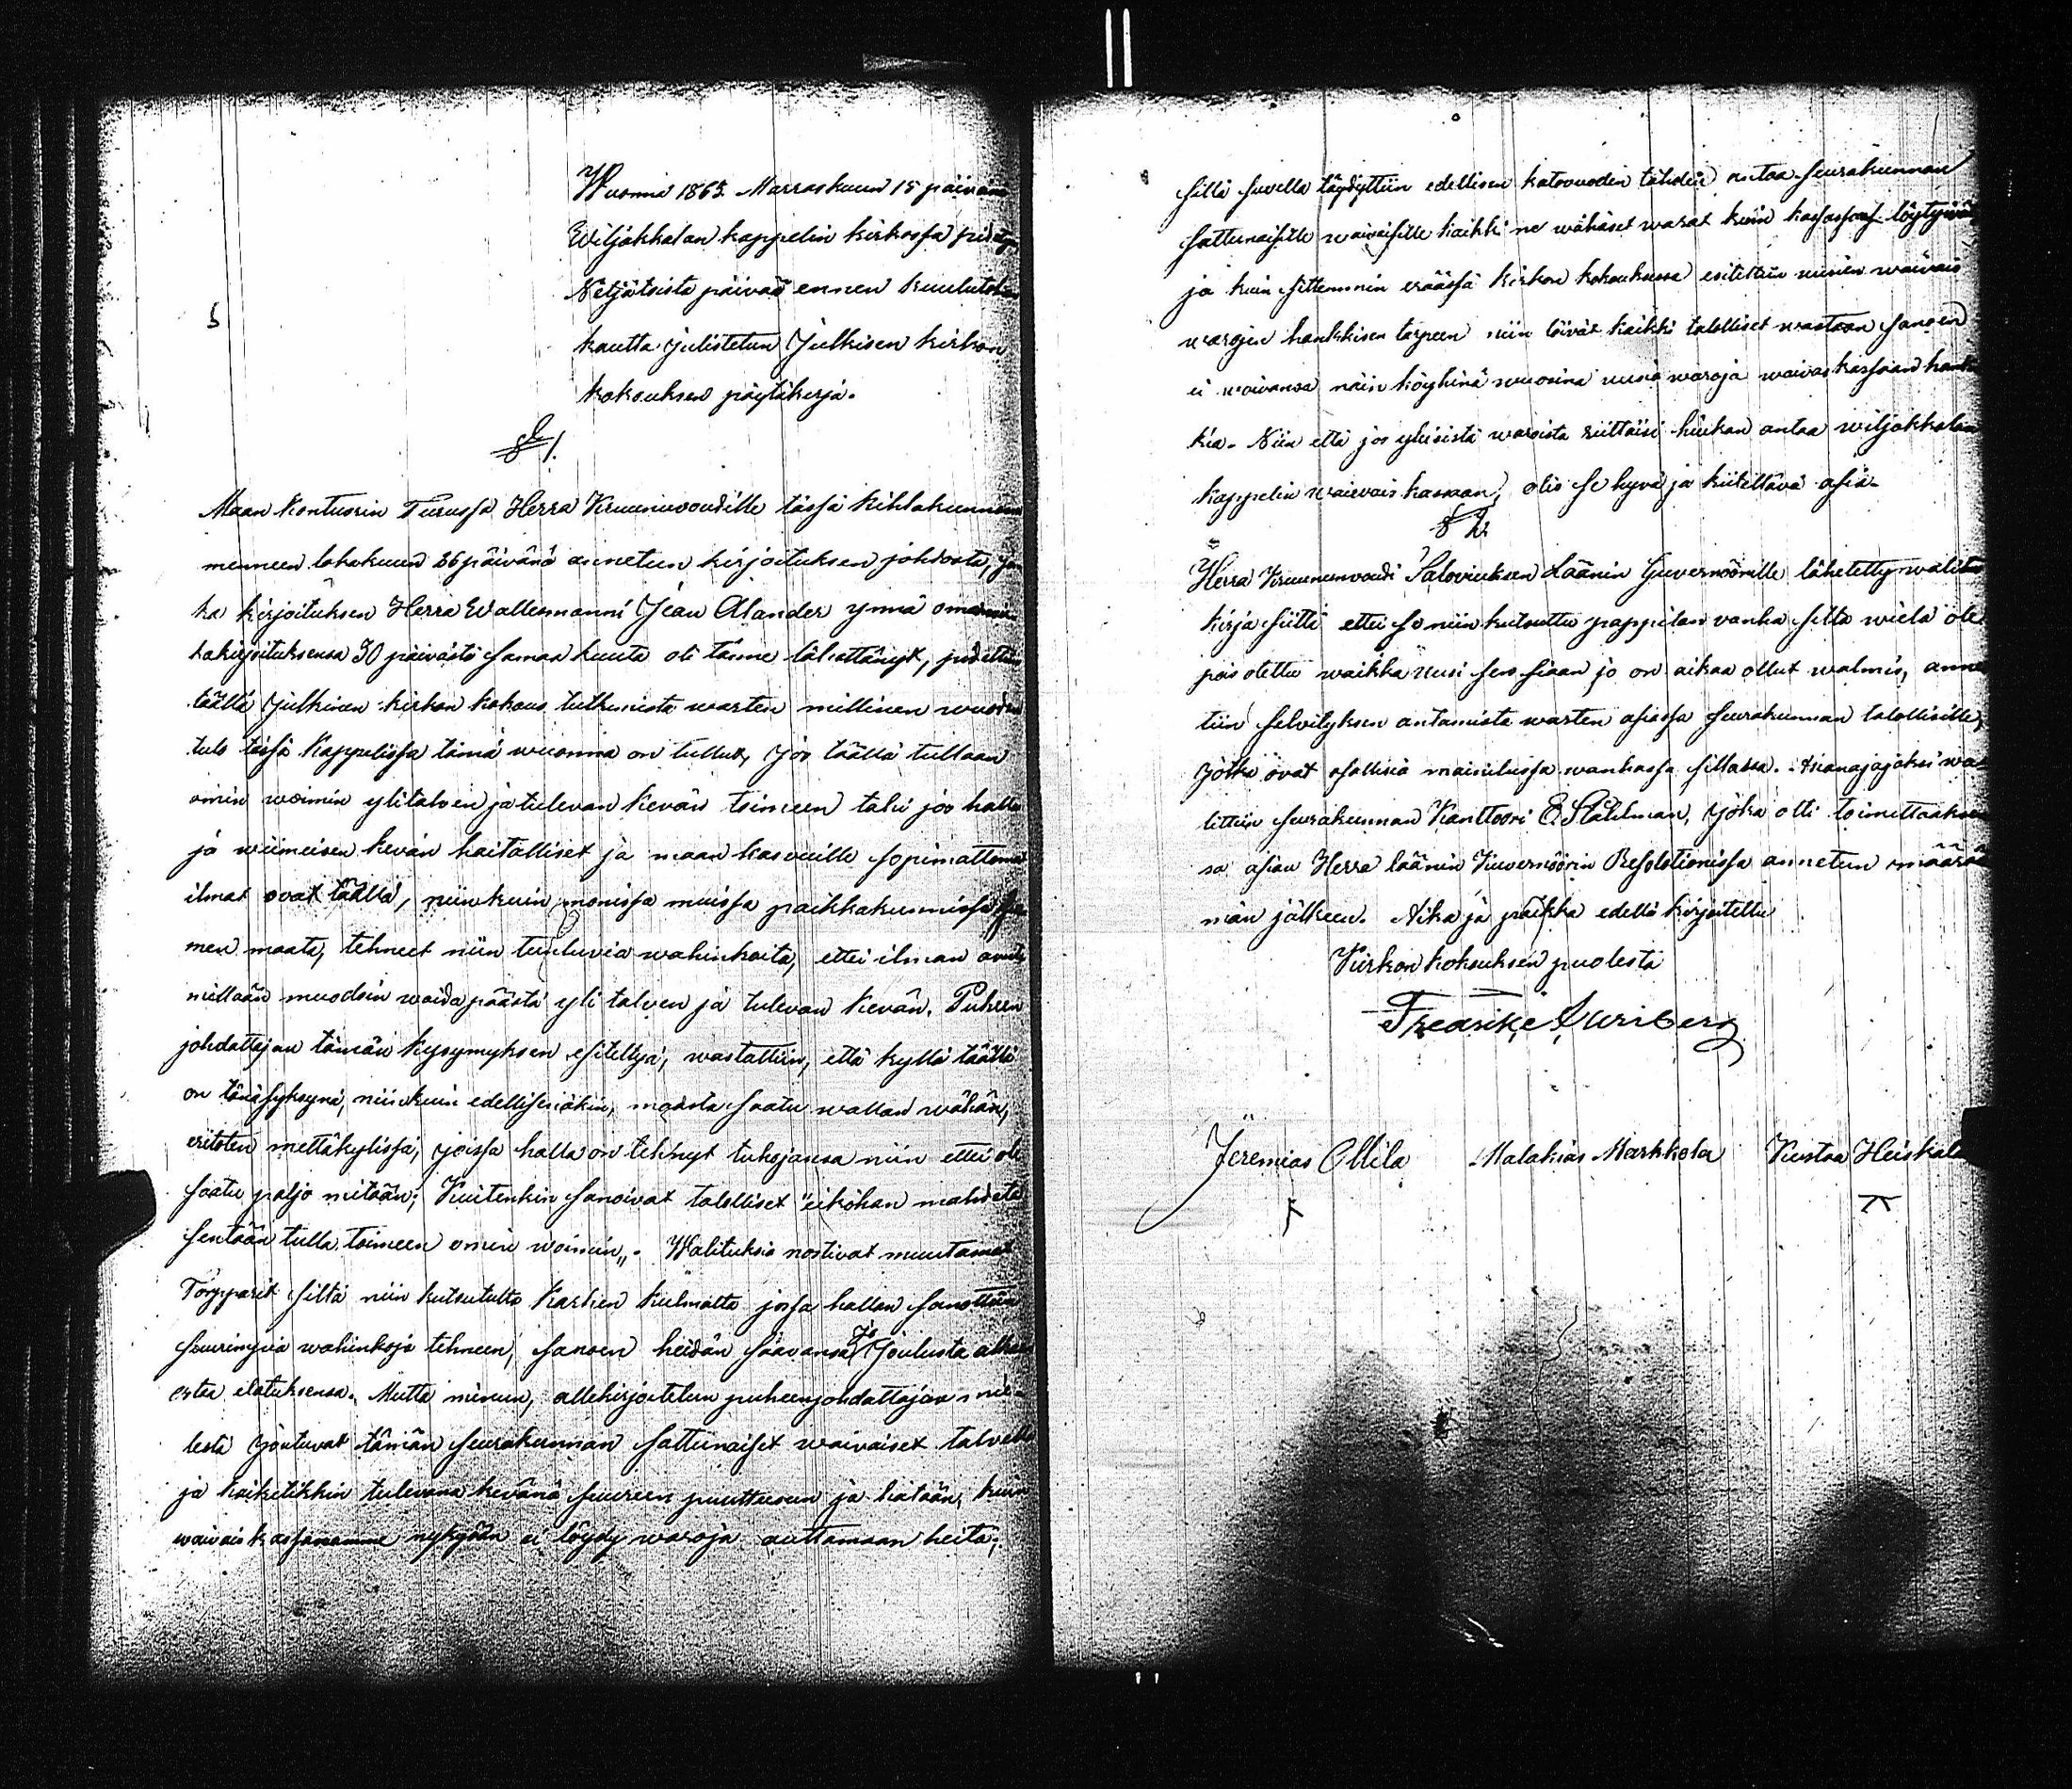 Wuonna 1863 Marraskuun 15 päivänä
Wiljakkalan kappelin kirkossa pidetyn
Neljätoista päivää ennen kuulutuksen
kautta julistetun Julkisen kirkon
kokouksen pöytäkirja.
§ 1.
Maan Konttuorin Turussa Herra Kruununvoudille tässä kihlakunnassa
menneen lokakuun 26 päivänä annetun kirjoituksen johdosta, jon
ka kirjoituksen Herra Wallesmanni Jean Alander ynnä oman
kirjoituksensa 30 päivästä samaa kuuta oli tänne lähättänyt, pidettiin
täällä Julkinen kirkon kokous tutkimista warten millinen wuoden
tulo tässä Kappelissa tämä wuonna on tullut, Jos täällä tullaan
omin woimin ylitalven ja tulevan kevän toimeen tahi jos halla
ja wiimeisen kevän haitalliset ja maan kasvuille sopimattomat
ilmat ovat täällä, niinkuin monissa muissa paikkakunnissa Suo
men maata, tehneet niin tuntuvia wahinkoita, ettei ilman avuta
millään muodoin woida päästä yli talven ja tulevan kevän. Puheen
johdattajan tämän kysymyksen esiteltyä, wastattiin, että kyllä täällä
on tänäsyksynä, niinkuin edellisinäkin, maasta saatu wallan wähän,
eritoten mettäkylissä, joissa halla on tehnyt tuhojansa niin ettei ole
saatu paljo mitään; Kuitenkin sanoivat talolliset "eiköhän mahdeta
sentään tulla toimeen omin woimin„. Walituksia nostivat muutamat
Torpparit siltä niin kutsutulta Karhen kulmalta jossa hallan sanottiin
suurimpia wahinkoja tehneen, sanoen heidän saavansa Jo Joulusta alkaen
ostaa elatuksensa. Mutta minun, allekirjoitetun puheenjohdattajan, mie-
lestä joutuvat tämän seurakunnan sattunaiset waivaiset talvella
ja kaiketikkin tulevana kevänä suureen puutteseen ja hätään, kuin
waivaiskassassamme nykyään ei löydy waroja auttamaan heitä,
sillä suvella täydyttiin edellisen katovuoden tähden antaa seurakunnan
sattunaisille waivaisille kaikki ne wähäset warat kuin kassassa löytyivät
ja kuin sittemmin eräässä kirkon kokouksessa esitettiin uusien waivais
warojen hankkisen tarpeen niin löivät kaikki talolliset wastaan sanoen
ei woivansa näin köyhinä wuosina uusia waroja waivaskassaan hank
kia. Niin että jos yleisistä waroista riittäisi hiukan antaa wiljakkalan
kappelin waivais kassaan, olis se hyvä ja kiitettävä asia.
§ 2.
Herra Kruununvouti Saloviuksen Läänin Guvernöörille lähetetty walitus
kirja siitä ettei se niin kutsuttu pappilan vanha silta wielä ole
pois otettu waikka uusi sen siaan jo on aikaa ollut walmis, annet
tiin selvityksen antamista warten asiassa seurakunnan talollisille,
jotka ovat osallisia mainitussa wanhassa sillassa. Asianajajaksi wa-
littiin seurakunnan Kanttoori E. Ståhlman, joka otti toimittaaksen
sa asian Herra läänin Kuvernöörin Resolotionissa annetun määrää
män jälkeen. Aika ja paikka edellä kirjoitettu
Kirkon kokouksen puolesta
Jeremias Ollila Malakias Markkola Kustaa Heiskala